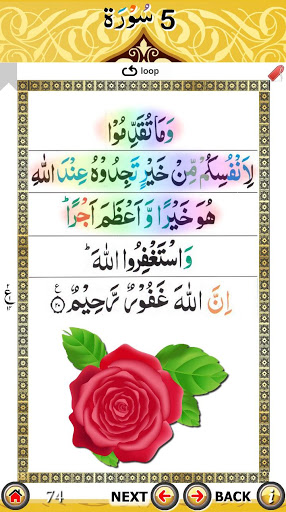 5 سُوْرَة
loop
وَمَا تُقَدِّمُوْا
لِاَنْفُسِكُمْ مِّنْ خَيْرٍ تَجِدُوْهُ عِنْدَ اللهِ
هُوَ خَيْرًا وَّ اَعْظَمَ اَجْرًا ؕ
وَاسْتَغْفِرُوا اللهَ ؕ
اِنَّ اللهَ غَفُوْرٌ رَّحِيْمٌ ﴿۲۰﴾
74 NEXT BACK i